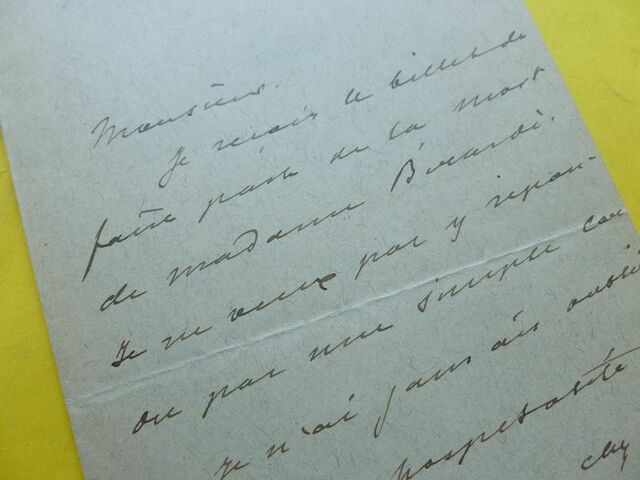 Monsieur.
Je reçois le billet de
faire part de la mort
de madame Bérardi.
Je ne veux pas y repon-
par une simple
Je n'ai jamais oublié
hospitalité